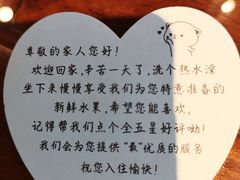 尊敬的家人您好！
欢迎回家，辛苦一天了，洗个热水澡
坐下来慢慢享受我们为您特意准备的
新鲜水果，希望您能喜欢，
记得帮我们点个全五星好评呦！
我们会为您提供“最”优质的服务
祝您入住愉快！